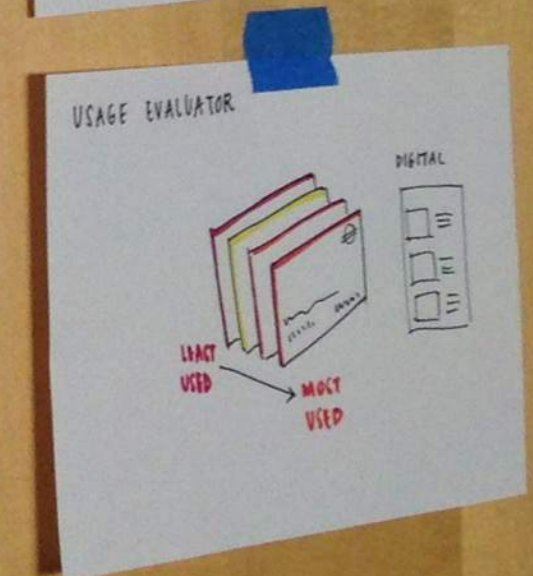 USAGE EVALUATOR
DIGITAL
LEAST
USED
MOST
USED